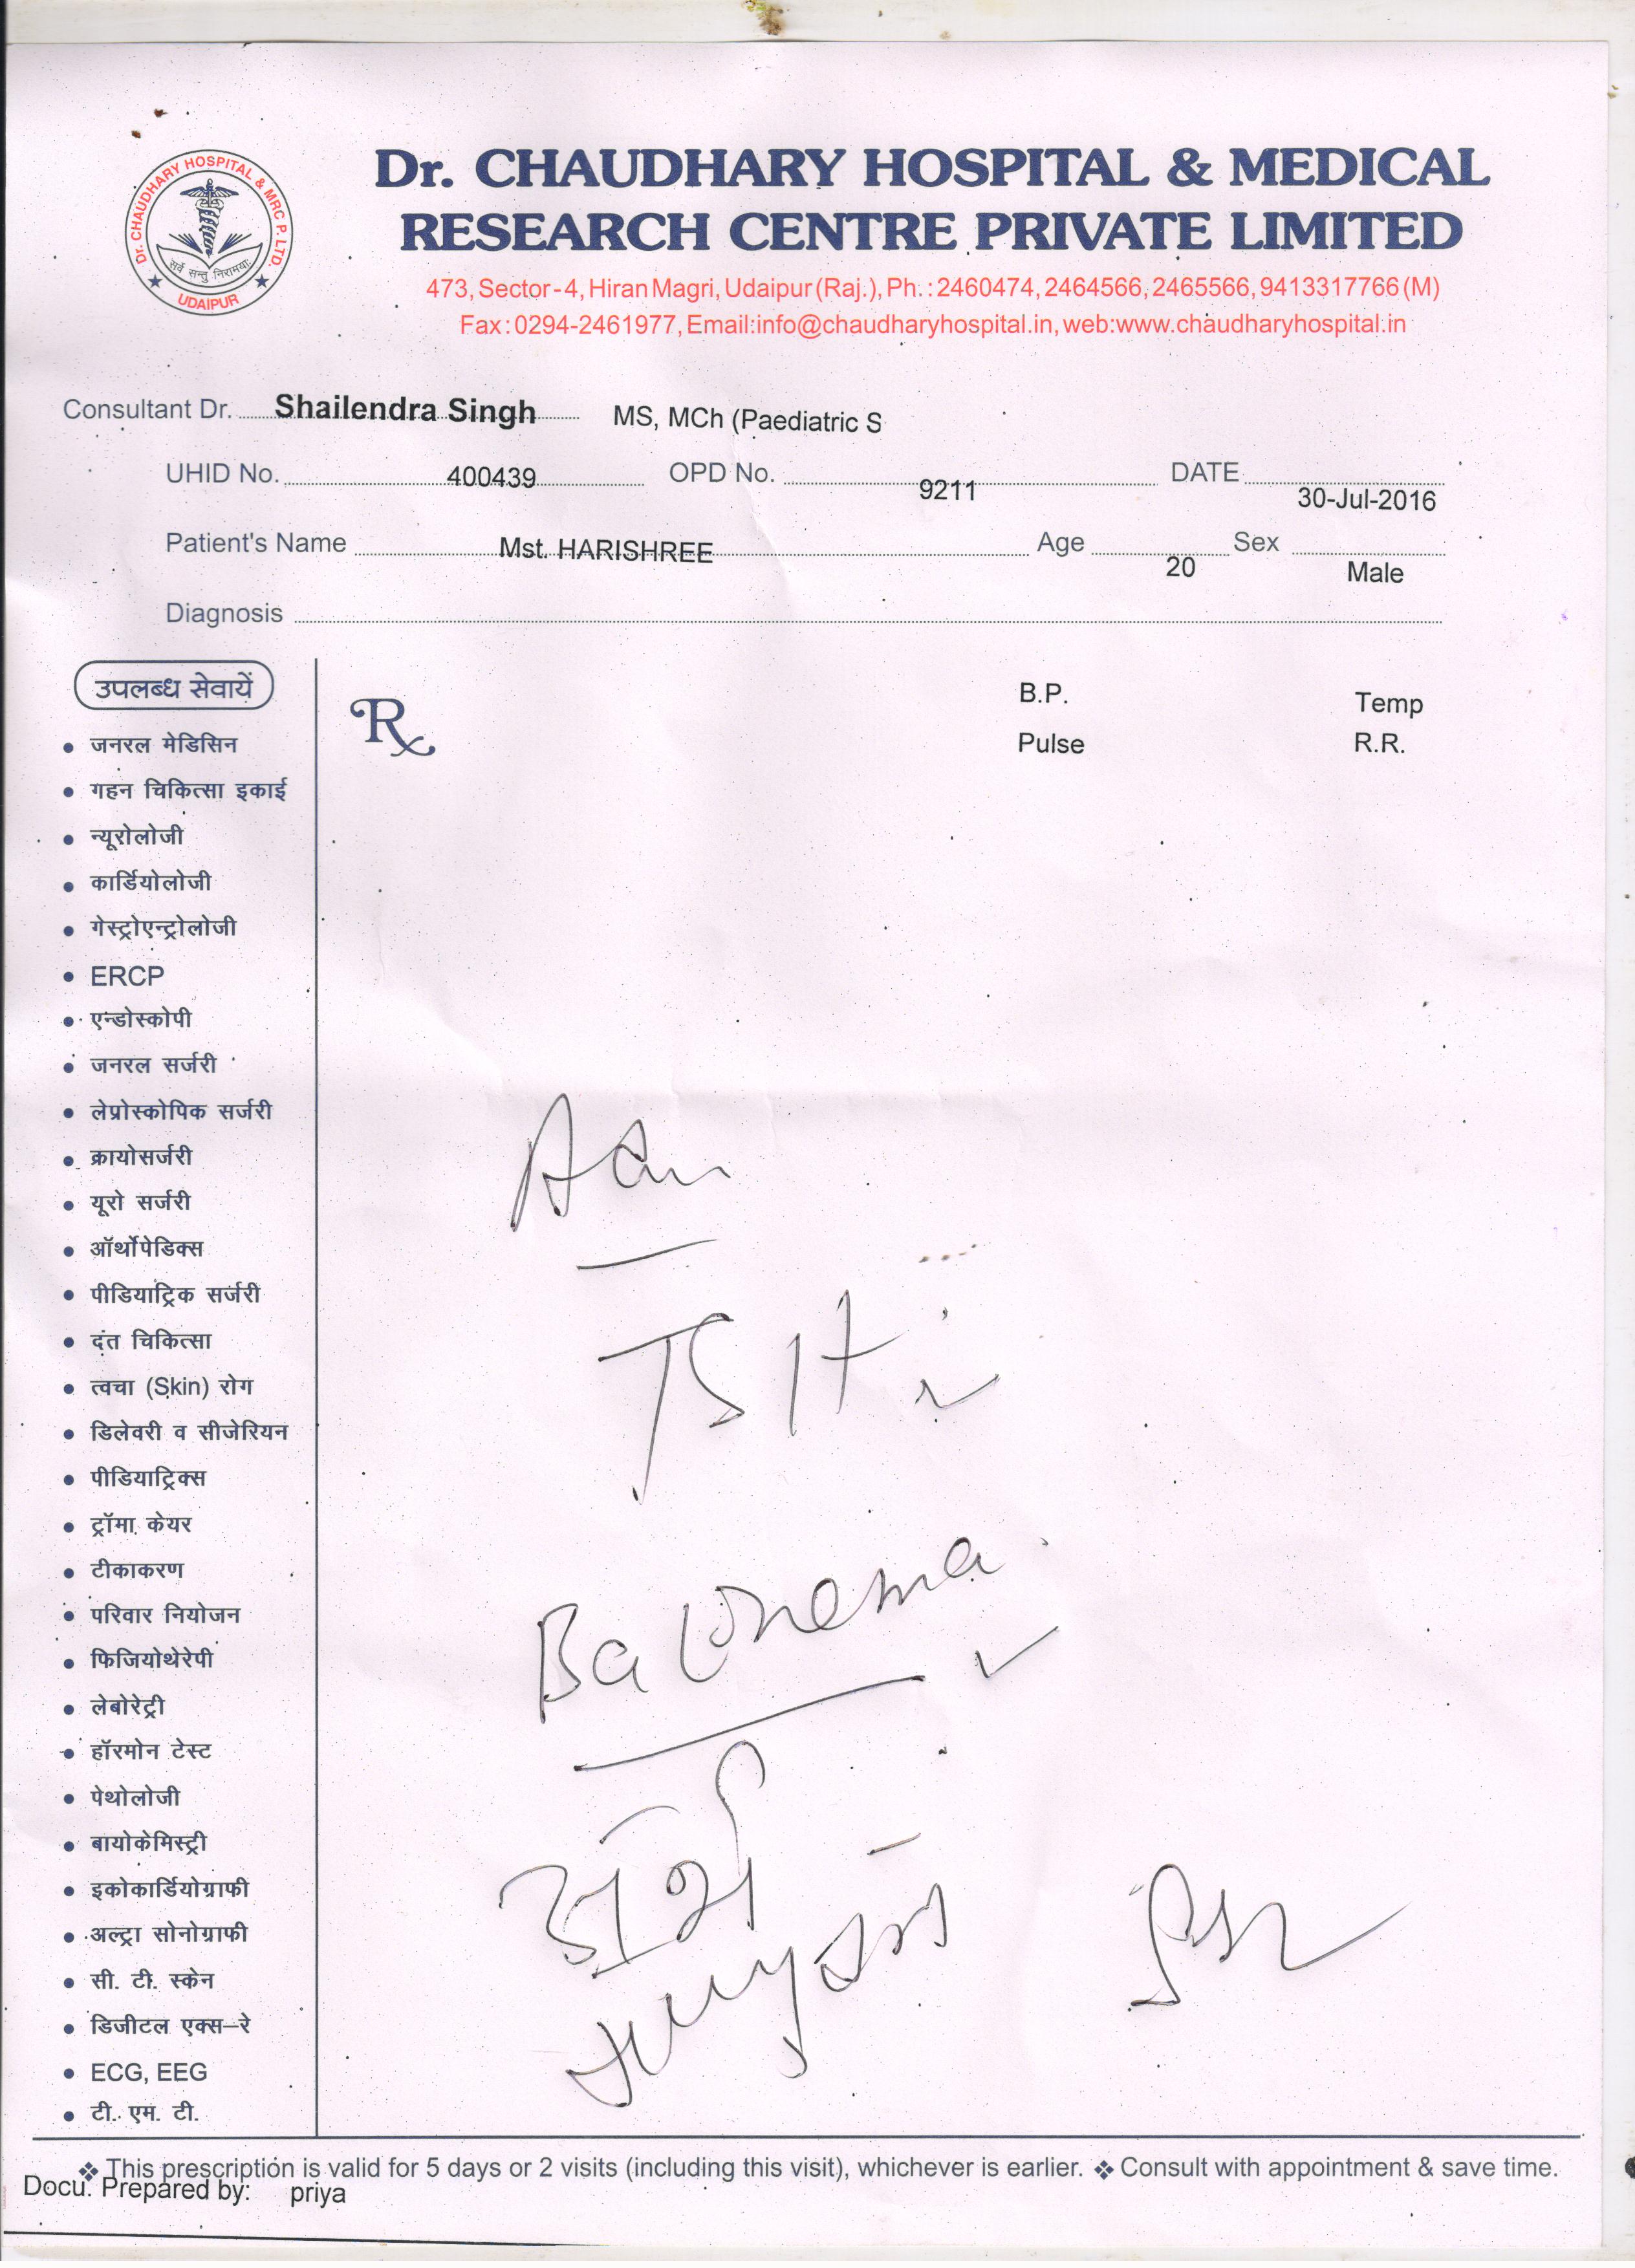 Dr. CHAUDHARY HOSPITAL & MRC P. LTD.
सर्वे सन्तु निरामयाः
UDAIPUR
Dr. CHAUDHARY HOSPITAL & MEDICAL
RESEARCH CENTRE PRIVATE LIMITED
473, Sector-4, Hiran Magri, Udaipur (Raj.), Ph.: 2460474, 2464566, 2465566, 9413317766 (M)
Fax: 0294-2461977, Email:info@chaudharyhospital.in, web:www.chaudharyhospital.in
Consultant Dr. Shailendra Singh MS, MCh (Paediatric S
UHID No. 400439 OPD No. 9211 DATE 30-Jul-2016
Patient's Name Mst. HARISHREE Age 20 Sex Male
Diagnosis
उपलब्ध सेवायें
• जनरल मेडिसिन
• गहन चिकित्सा इकाई
• न्यूरोलोजी
• कार्डियोलोजी
• गेस्ट्रोएन्ट्रोलोजी
• ERCP
• एन्डोस्कोपी
• जनरल सर्जरी
• लेप्रोस्कोपिक सर्जरी
• क्रायोसर्जरी
• यूरो सर्जरी
• ऑर्थोपेडिक्स
• पीडियाट्रिक सर्जरी
• दंत चिकित्सा
• त्वचा (Skin) रोग
• डिलेवरी व सीजेरियन
• पीडियाट्रिक्स
• ट्रॉमा केयर
• टीकाकरण
• परिवार नियोजन
• फिजियोथेरेपी
• लेबोरेट्री
• हॉरमोन टेस्ट
• पेथोलोजी
• बायोकेमिस्ट्री
• इकोकार्डियोग्राफी
• अल्ट्रा सोनोग्राफी
• सी. टी. स्केन
• डिजीटल एक्स-रे
• ECG, EEG
• टी. एम. टी.
Rx
B.P. Temp
Pulse R.R.
TSH
Ba Enema
❖ This prescription is valid for 5 days or 2 visits (including this visit), whichever is earlier. ❖ Consult with appointment & save time.
Docu. Prepared by: priya